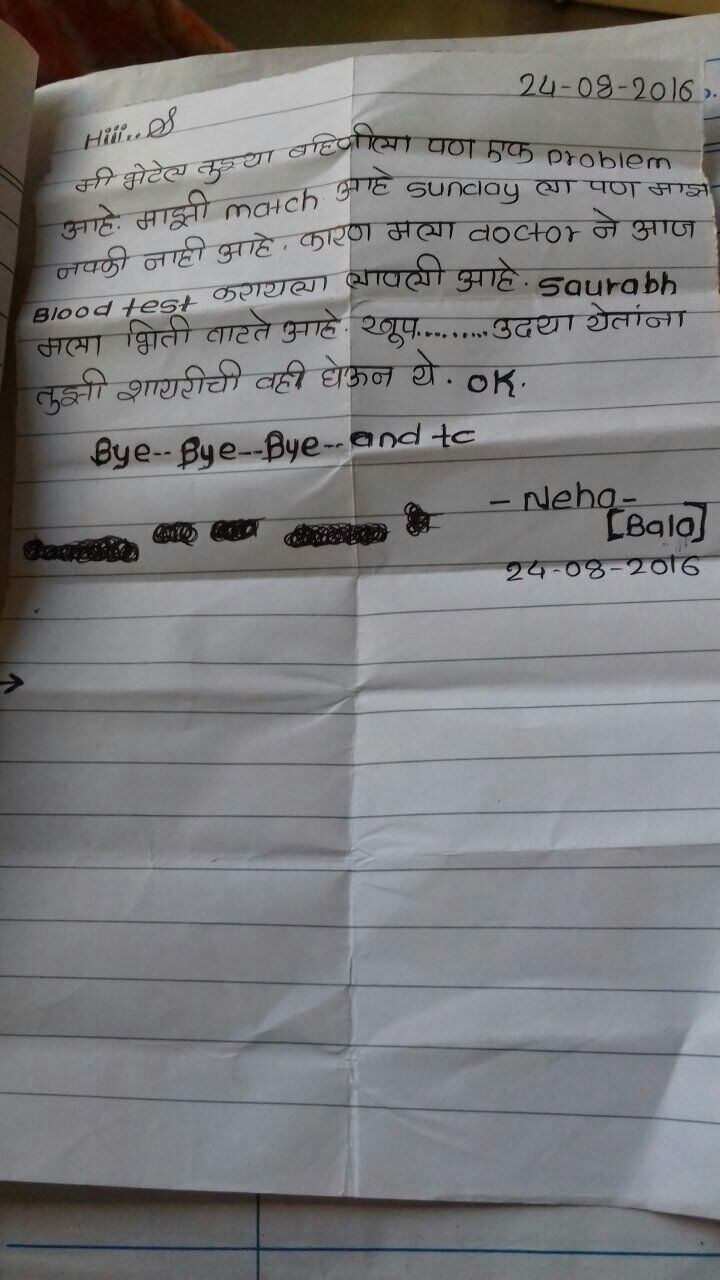 24-08-2016
Hiii..S
मी भेटेल तुझ्या बहिणीला पण एक problem
आहे. माझी match आहे sunday ला पण माझ
नक्की नाही आहे. कारण मला doctor ने आज
Blood test करायला लावली आहे. saurabh
मला भिती वाटते आहे. खूप......... उदया येतांना
तुझी शायरीची वही घेऊन ये. OK.
Bye-- Bye--Bye--and tc
- Neha -
[Bala]
24-08-2016